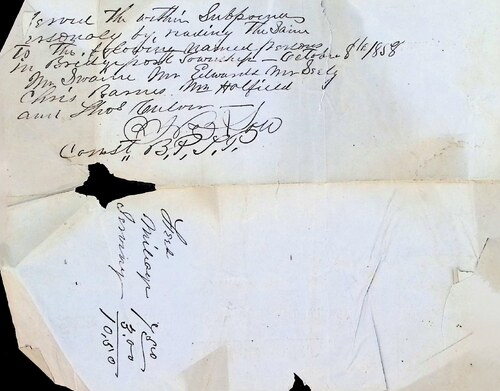 Served the within Subpoena
personaly by reading the Same
To the following named persons
in Bridgeport Township – October 8th 1858
Mr Swaine Mr Edwards Mr Seely
Chris Barnes. Mr Holfield
and Thos Culver –
Const" B, P, T, P.
Fees
Milage 7,50
Serving 3,00
10,50